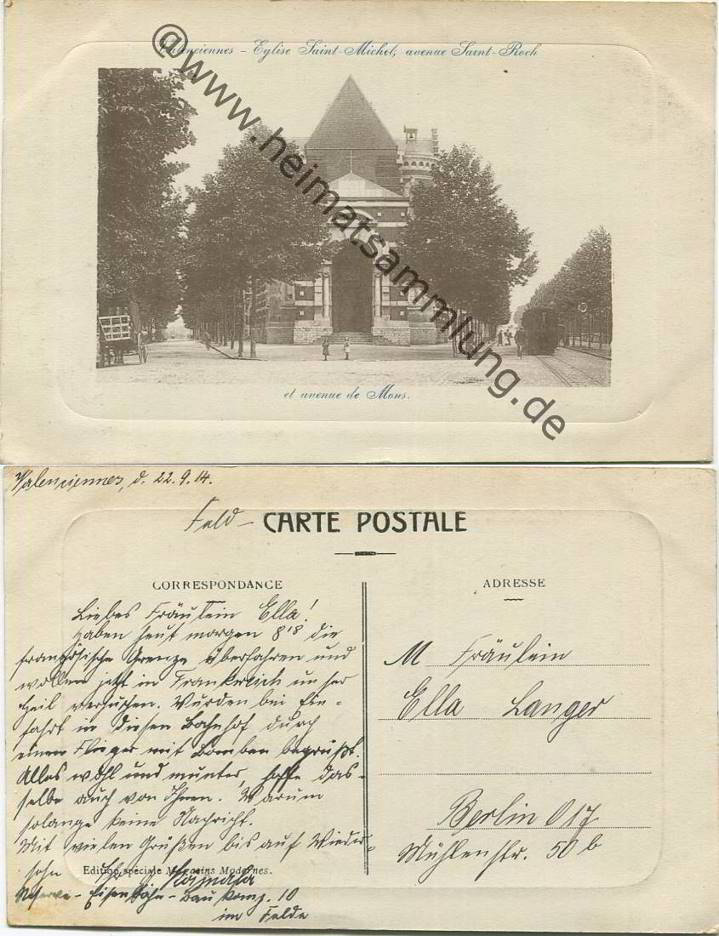 Valenciennes – Eglise Saint-Michel, avenue Saint-Roch
@www.heimatsammlung.de
et avenue de Mons.
Valenciennes, d. 22.9.14.
Feld- CARTE POSTALE
CORRESPONDANCE
ADRESSE
Liebes Fräulein Ella!
haben heut morgen 8¹⁸ die
französische Grenze überfahren und
wollen jetzt in Frankreich unser
Heil versuchen. Wurden bei Ein-
fahrt in diesen Bahnhof durch
einen Flieger mit Bomben begrüßt.
Alles wohl und munter, hoffe das-
selbe auch von Ihnen. Warum
solange keine Nachricht.
Mit vielen Grüßen bis auf Wieder-
sehn
Edition spéciale Magasins Modernes.
Reserve-Eisenbahn-Baukomp. 10
im Felde
M Fräulein
Ella Langer
Berlin O 17
Mühlenstr. 50 b